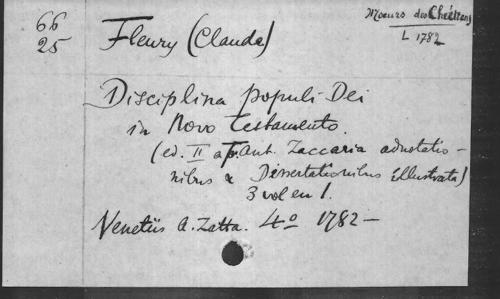 66
25
Fleury (Claude)
Moeurs des Chrétiens
L 1782
Disciplina populi Dei
in Novo Testamento.
(ed. II a Fr. Ant. Zaccaria adnotatio-
nibus & Dissertationibus illustrata)
3 vol en 1.
Venetiis A. Zatta. 4o 1782-